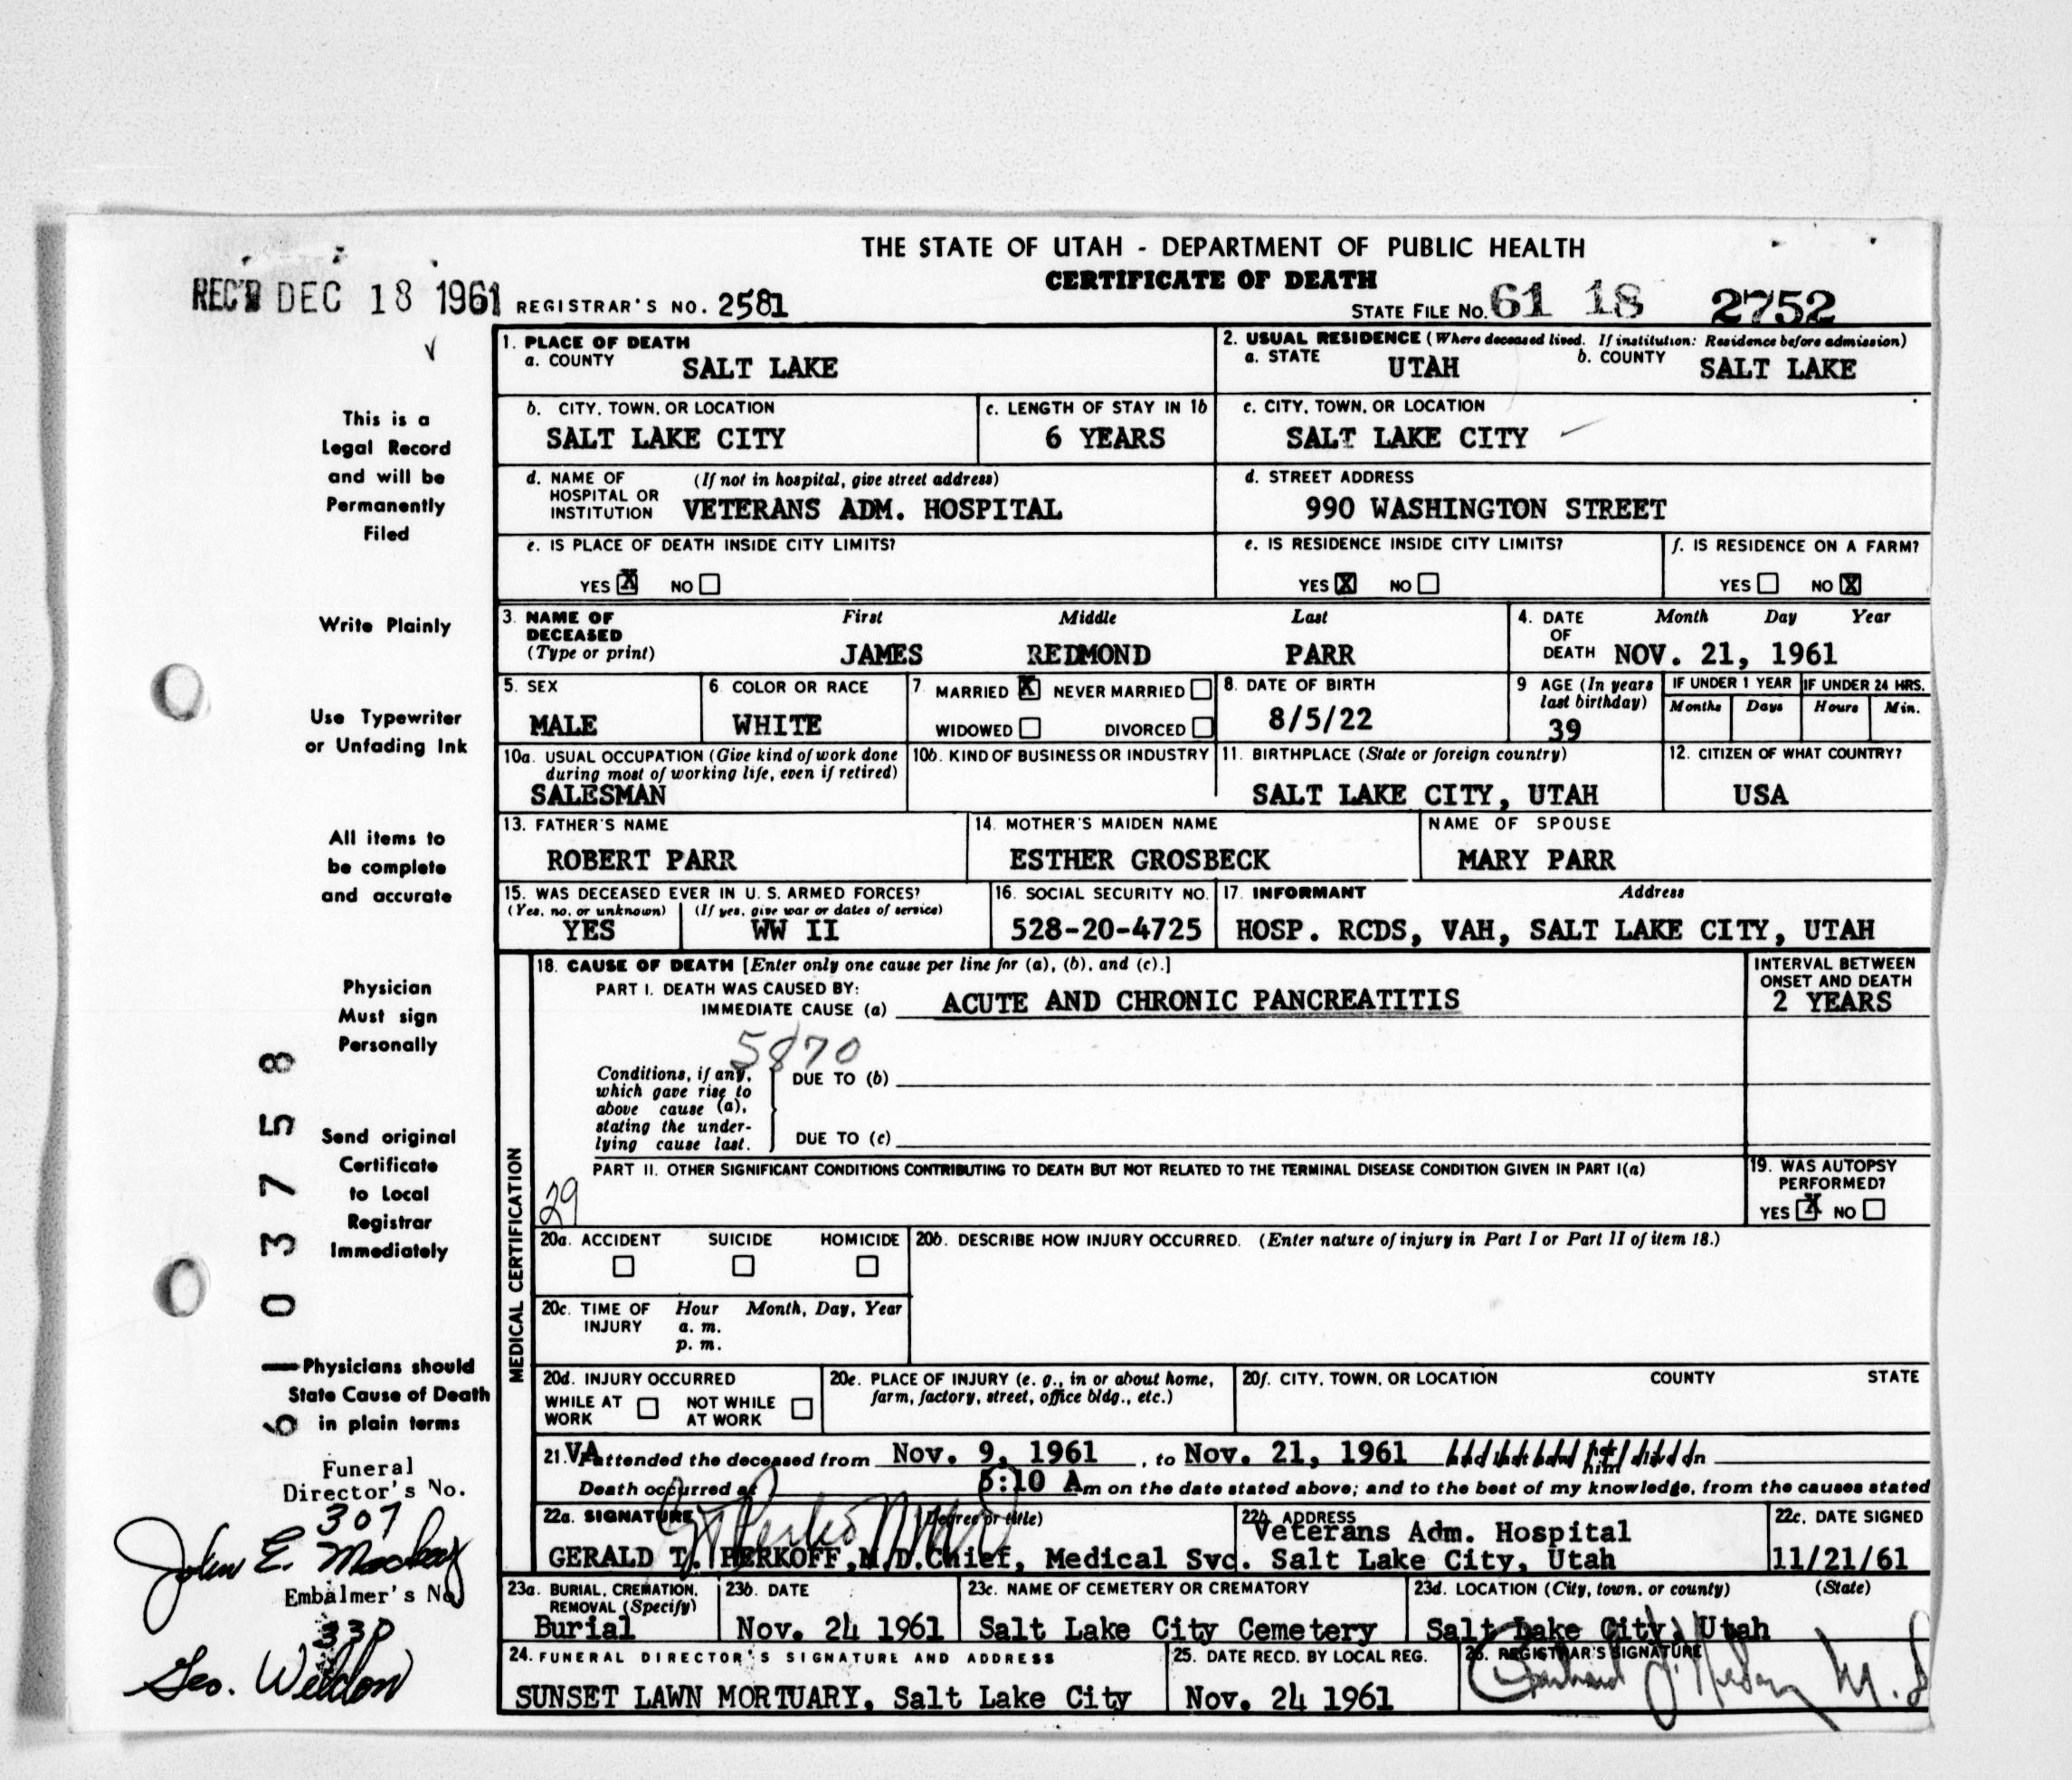 THE STATE OF UTAH - DEPARTMENT OF PUBLIC HEALTH
CERTIFICATE OF DEATH
REC'D DEC 18 1961 REGISTRAR'S NO. 2581 STATE FILE NO. 61 18 2752
1. PLACE OF DEATH
a. COUNTY SALT LAKE
2. USUAL RESIDENCE (Where deceased lived. If institution: Residence before admission)
a. STATE UTAH b. COUNTY SALT LAKE
b. CITY, TOWN, OR LOCATION
SALT LAKE CITY
c. LENGTH OF STAY IN 1b
6 YEARS
c. CITY, TOWN, OR LOCATION
SALT LAKE CITY
d. NAME OF (If not in hospital, give street address)
HOSPITAL OR
INSTITUTION VETERANS ADM. HOSPITAL
d. STREET ADDRESS
990 WASHINGTON STREET
e. IS PLACE OF DEATH INSIDE CITY LIMITS?
YES X NO
e. IS RESIDENCE INSIDE CITY LIMITS?
YES X NO
f. IS RESIDENCE ON A FARM?
YES NO X
3. NAME OF First Middle Last
DECEASED
(Type or print) JAMES REDMOND PARR
4. DATE Month Day Year
OF
DEATH NOV. 21, 1961
5. SEX
MALE
6. COLOR OR RACE
WHITE
7. MARRIED X NEVER MARRIED
WIDOWED DIVORCED
8. DATE OF BIRTH
8/5/22
9 AGE (In years
last birthday)
39
IF UNDER 1 YEAR IF UNDER 24 HRS.
Months Days Hours Min.
10a. USUAL OCCUPATION (Give kind of work done
during most of working life, even if retired)
SALESMAN
10b. KIND OF BUSINESS OR INDUSTRY
11. BIRTHPLACE (State or foreign country)
SALT LAKE CITY, UTAH
12. CITIZEN OF WHAT COUNTRY?
USA
13. FATHER'S NAME
ROBERT PARR
14. MOTHER'S MAIDEN NAME
ESTHER GROSBECK
NAME OF SPOUSE
MARY PARR
15. WAS DECEASED EVER IN U. S. ARMED FORCES?
(Yes, no, or unknown) (If yes, give war or dates of service)
YES WW II
16. SOCIAL SECURITY NO.
528-20-4725
17. INFORMANT Address
HOSP. RCDS, VAH, SALT LAKE CITY, UTAH
MEDICAL CERTIFICATION
18. CAUSE OF DEATH [Enter only one cause per line for (a), (b), and (c).]
PART I. DEATH WAS CAUSED BY:
IMMEDIATE CAUSE (a) ACUTE AND CHRONIC PANCREATITIS
INTERVAL BETWEEN
ONSET AND DEATH
2 YEARS
5870
Conditions, if any,
which gave rise to
above cause (a),
stating the under-
lying cause last.
DUE TO (b)
DUE TO (c)
PART II. OTHER SIGNIFICANT CONDITIONS CONTRIBUTING TO DEATH BUT NOT RELATED TO THE TERMINAL DISEASE CONDITION GIVEN IN PART I(a)
29
19. WAS AUTOPSY
PERFORMED?
YES X NO
20a. ACCIDENT SUICIDE HOMICIDE
20b. DESCRIBE HOW INJURY OCCURRED. (Enter nature of injury in Part I or Part II of item 18.)
20c. TIME OF Hour Month, Day, Year
INJURY a. m.
p. m.
20d. INJURY OCCURRED
WHILE AT NOT WHILE
WORK AT WORK
20e. PLACE OF INJURY (e. g., in or about home,
farm, factory, street, office bldg., etc.)
20f. CITY, TOWN, OR LOCATION COUNTY STATE
21. VA attended the deceased from Nov. 9, 1961, to Nov. 21, 1961 and last saw her/him alive on
Death occurred at 5:10 A m on the date stated above; and to the best of my knowledge, from the causes stated
22a. SIGNATURE (Degree or title)
GERALD T. PERKOFF, M.D. Chief, Medical Svc.
22b. ADDRESS
Veterans Adm. Hospital
Salt Lake City, Utah
22c. DATE SIGNED
11/21/61
23a. BURIAL, CREMATION,
REMOVAL (Specify)
Burial
23b. DATE
Nov. 24 1961
23c. NAME OF CEMETERY OR CREMATORY
Salt Lake City Cemetery
23d. LOCATION (City, town, or county) (State)
Salt Lake City, Utah
24. FUNERAL DIRECTOR'S SIGNATURE AND ADDRESS
SUNSET LAWN MORTUARY, Salt Lake City
25. DATE RECD. BY LOCAL REG.
Nov. 24 1961
26. REGISTRAR'S SIGNATURE
This is a
Legal Record
and will be
Permanently
Filed
Write Plainly
Use Typewriter
or Unfading Ink
All items to
be complete
and accurate
Physician
Must sign
Personally
Send original
Certificate
to Local
Registrar
Immediately
Physicians should
State Cause of Death
in plain terms
6 — 0 3 7 5 8
Funeral
Director's No.
307
John E. Mackay
Embalmer's No.
330
Geo. Weldon